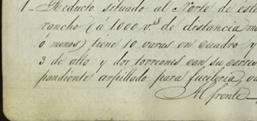 1_ Reducto situado al Norte de este
rancho (á 1000 v.s de distancia
ó menos) tiene 10 varas en cuadro y
3 de alto y dos torreones con su
pondiente aspillado para fucileria
Al frente